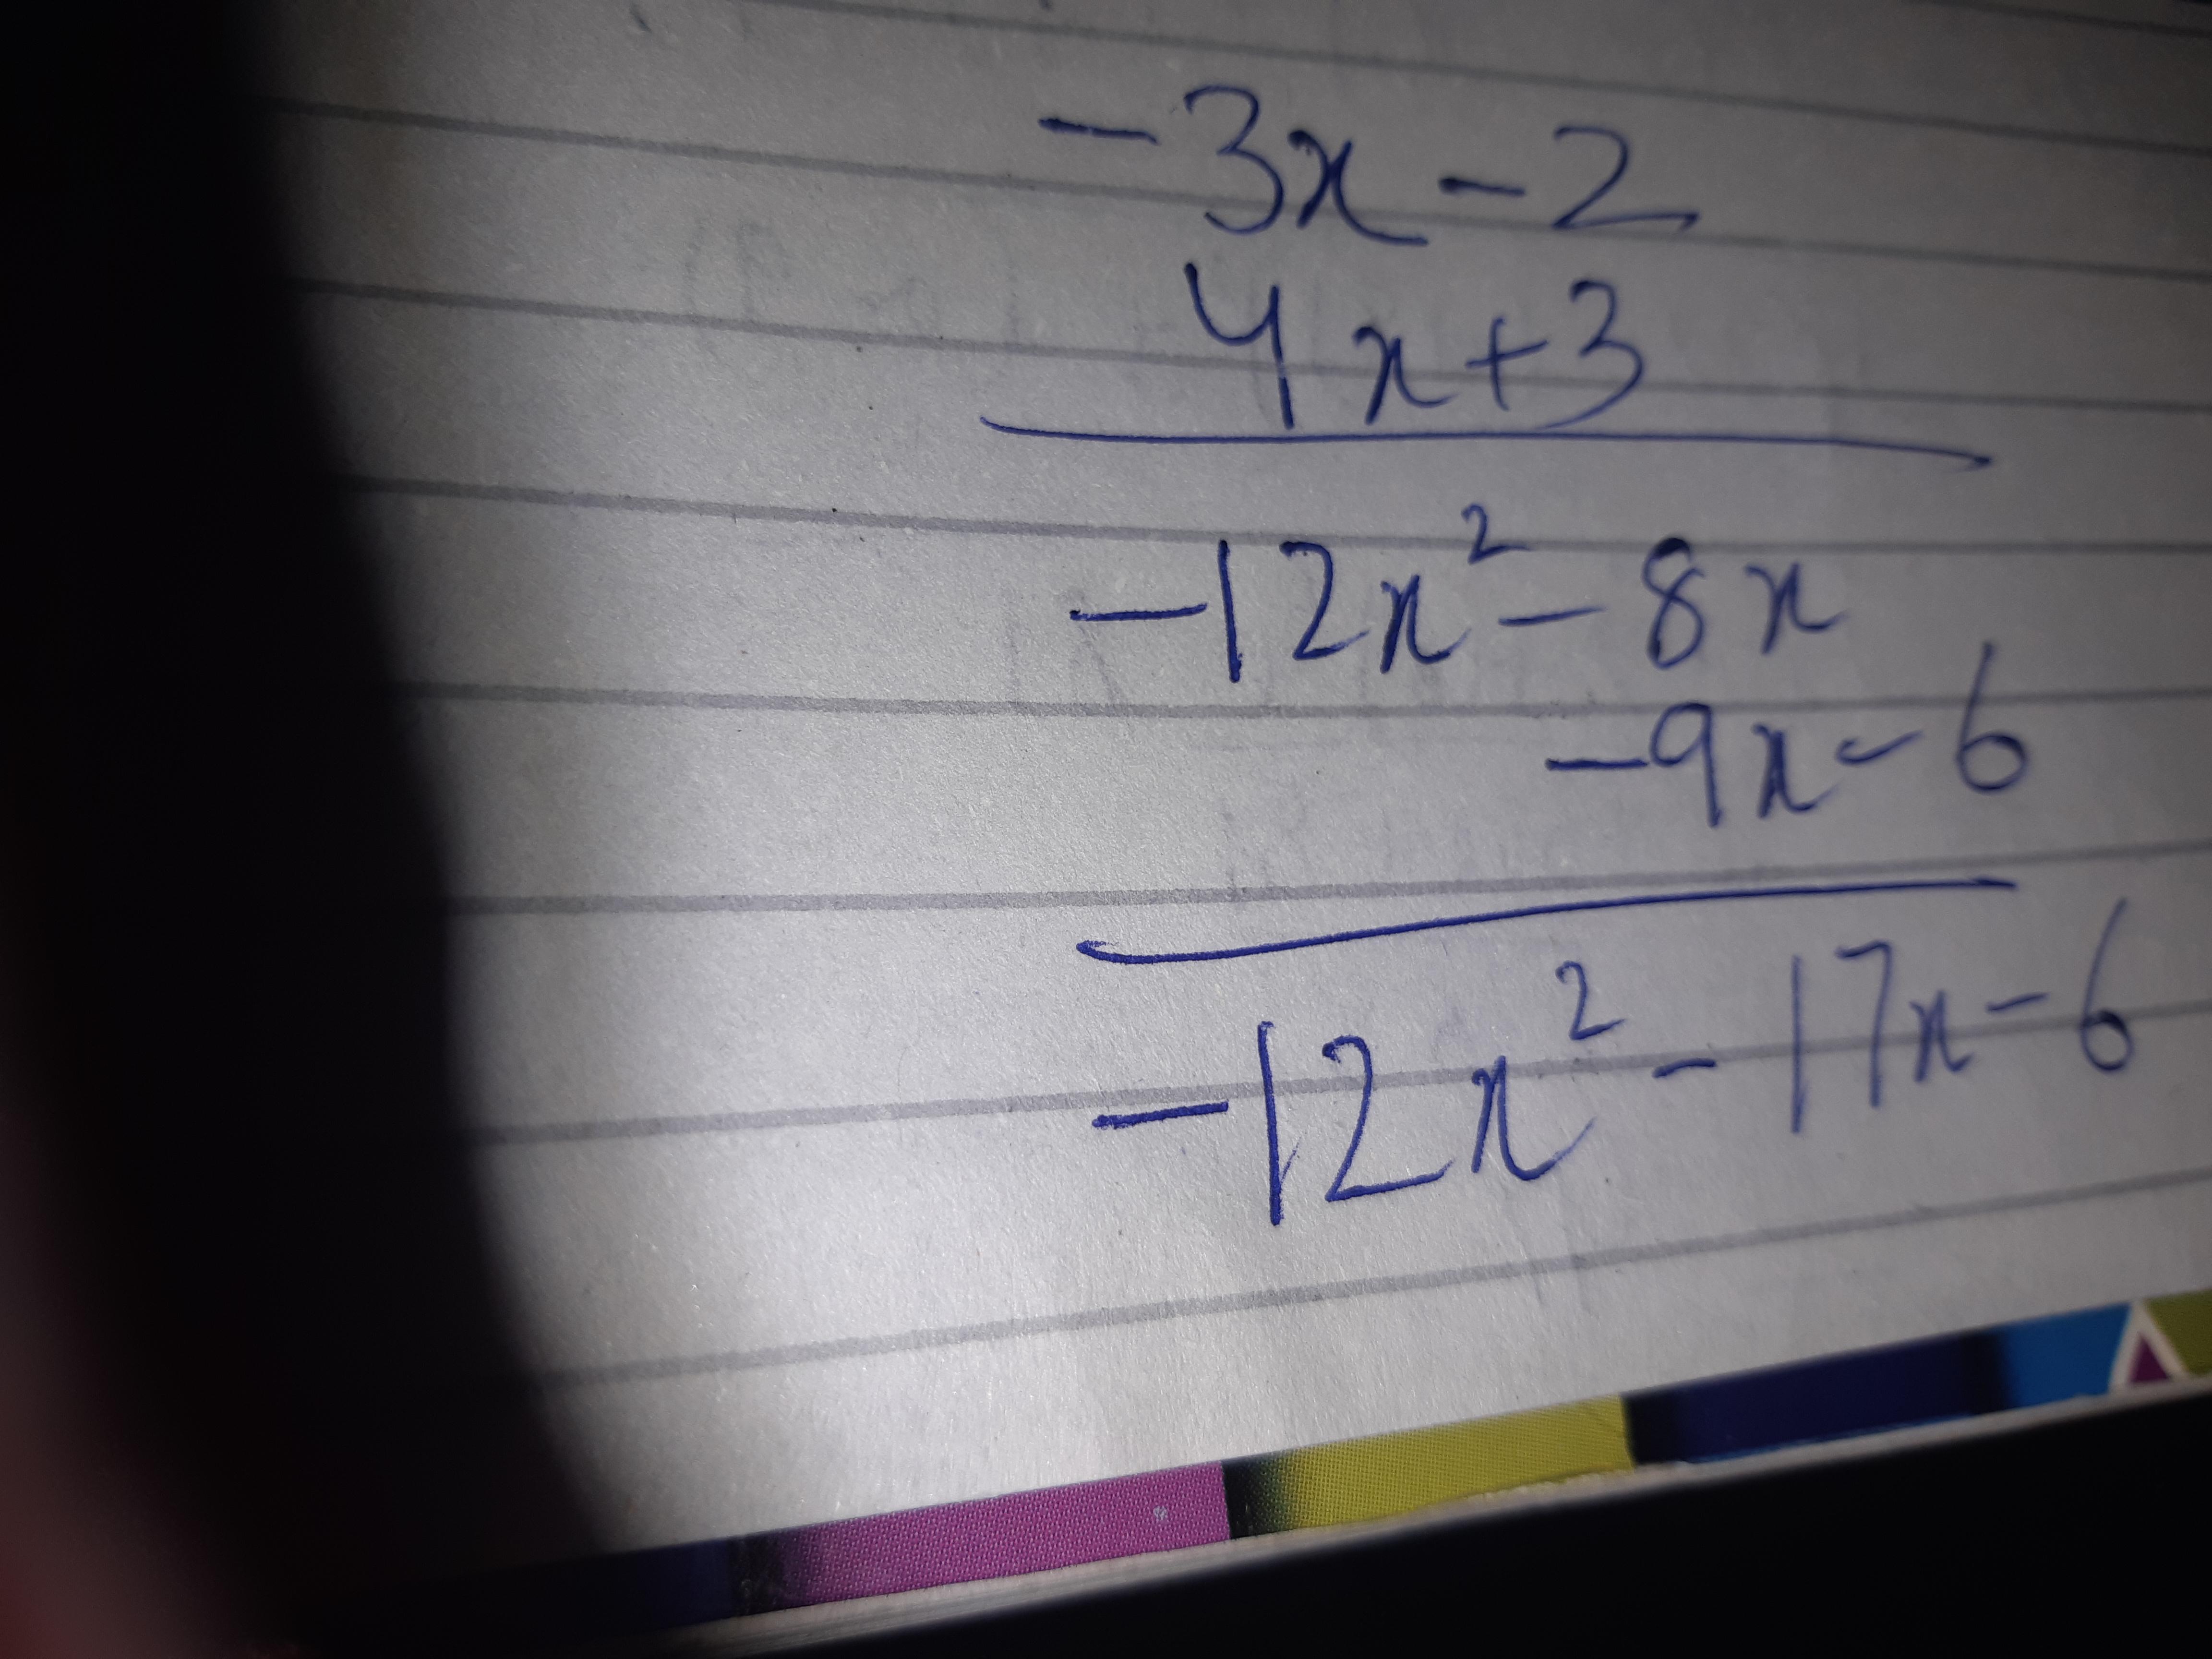 -3x-2
4x+3
-12x²-8x
-9x-6
-12x²-17x-6